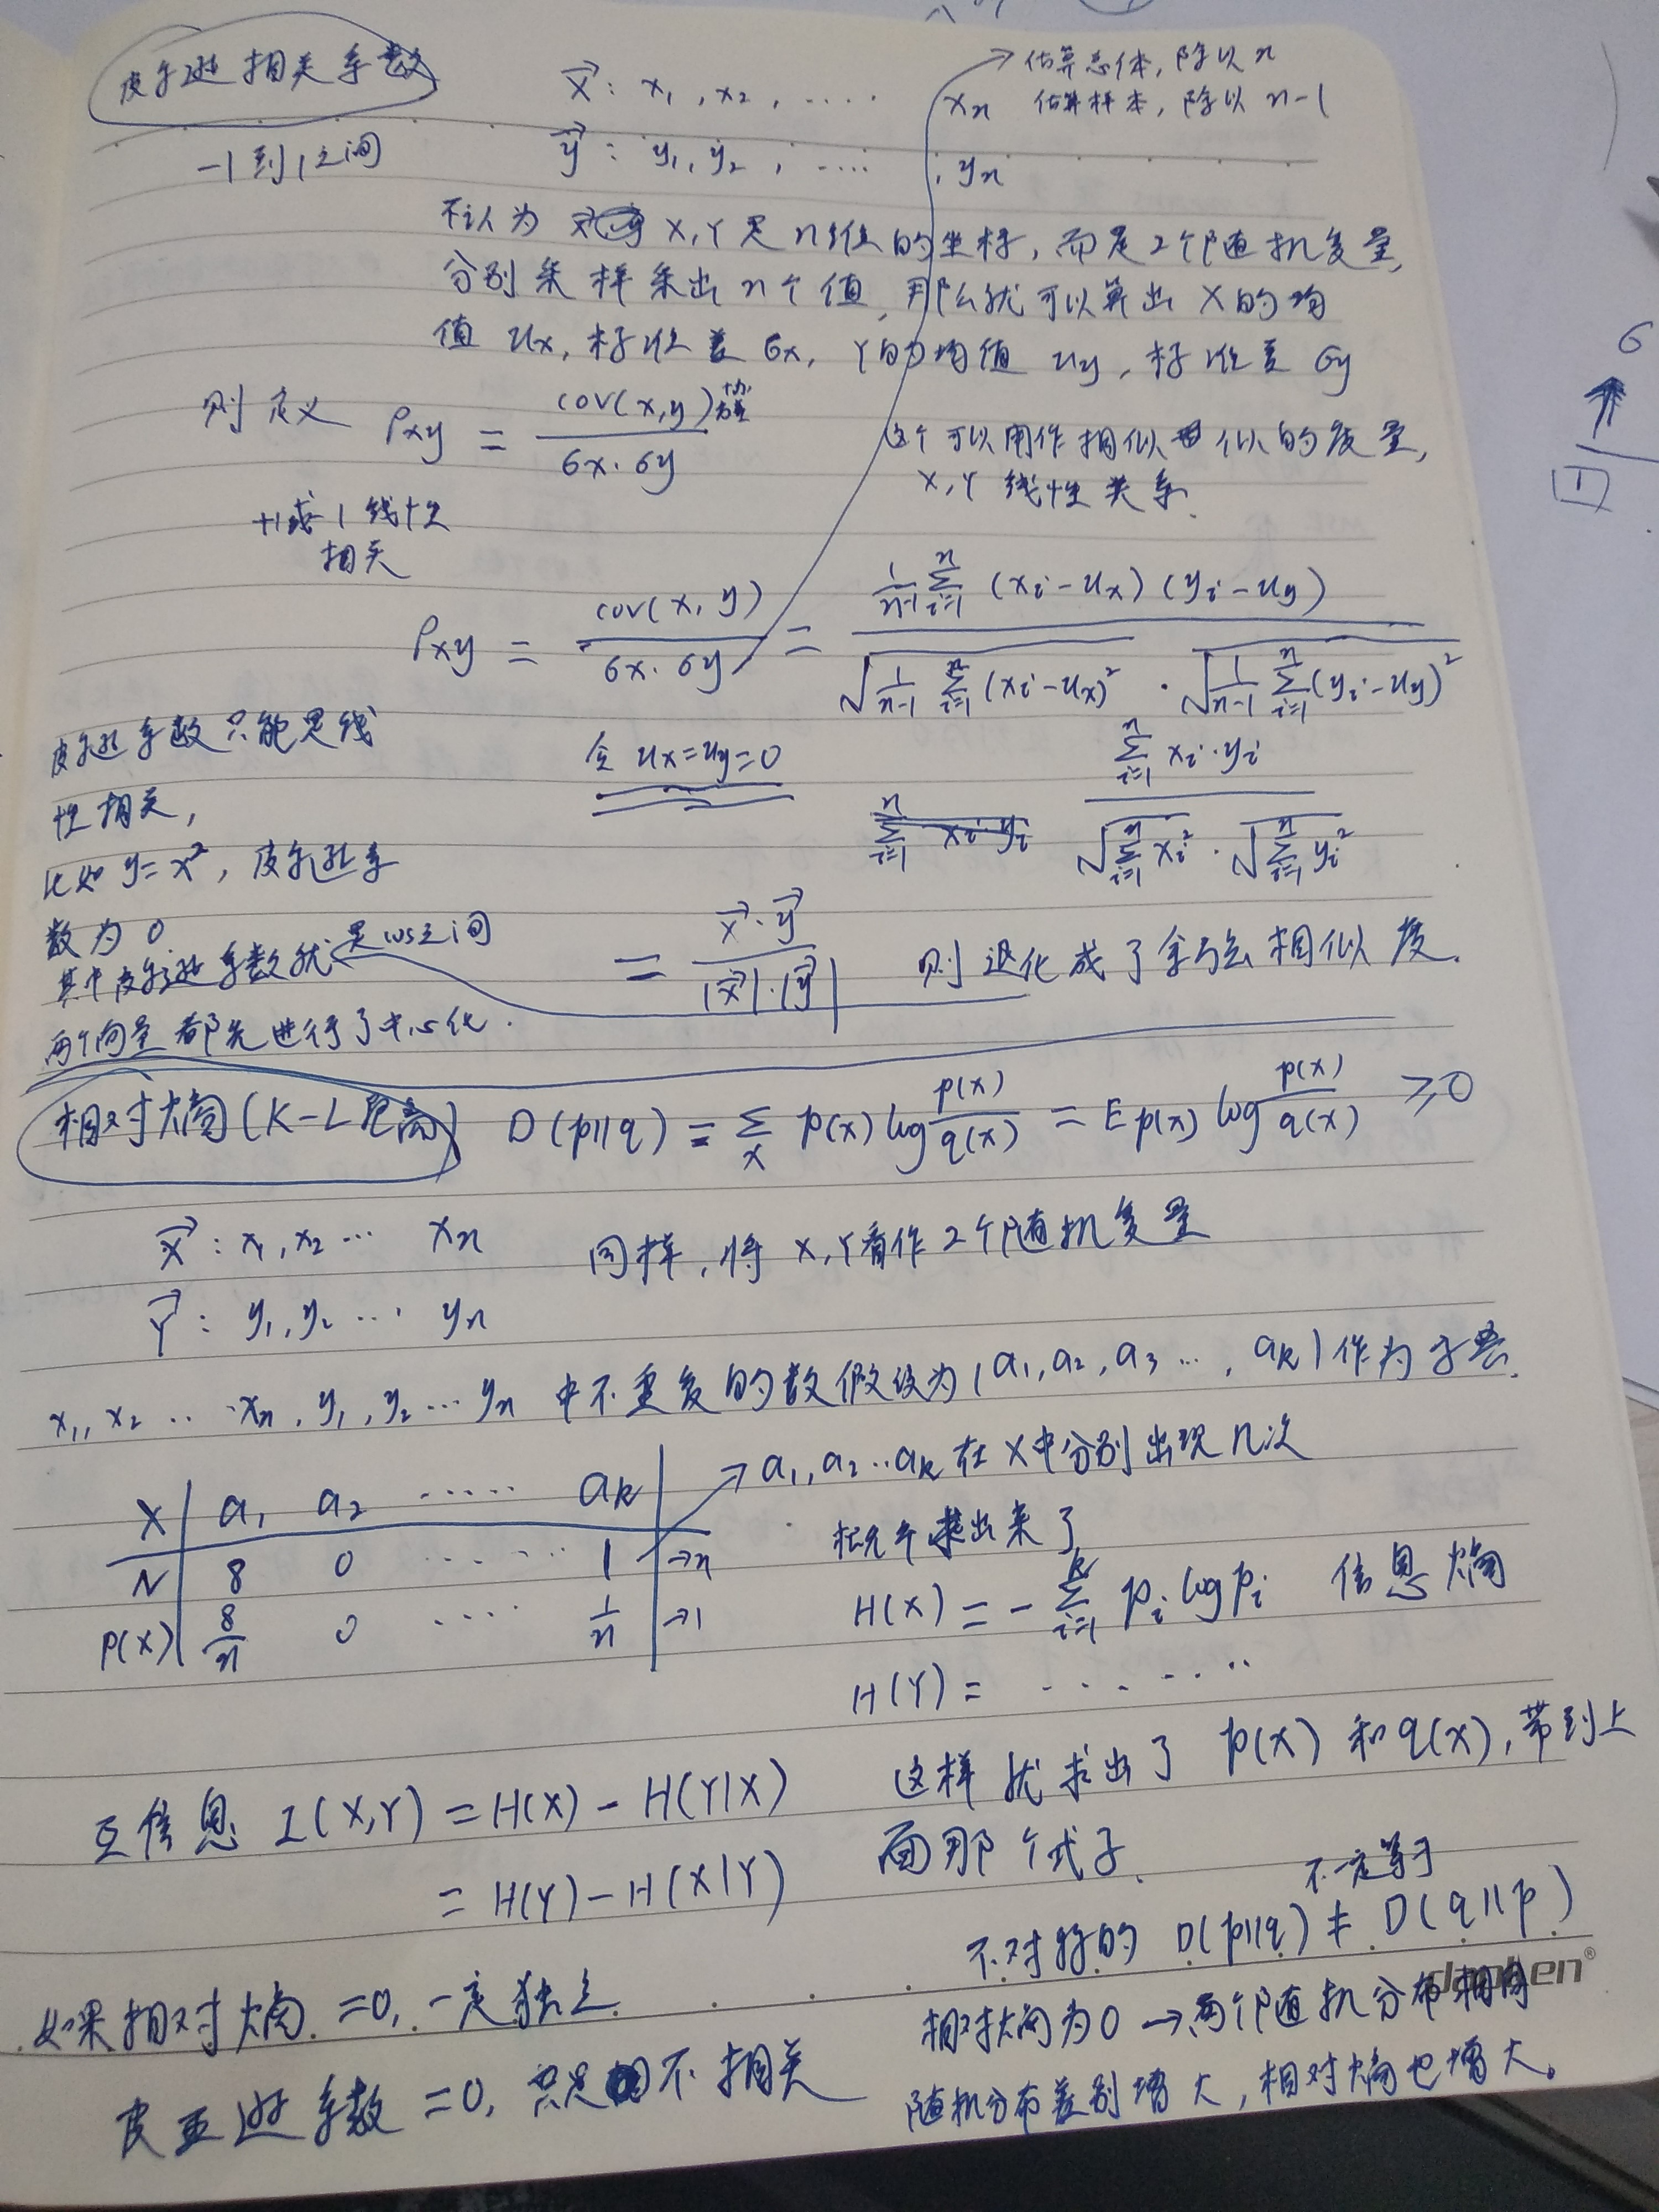 皮尔逊相关系数
→估算总体，除以n
x⃗ : x₁, x₂, ····  xₙ  估算样本，除以 n-1
-1到1之间  y⃗ : y₁, y₂, ····, yₙ
不认为 X,Y是n维的坐标，而是2个随机变量，
分别采样采出n个值，那么就可以算出X的均
值 ux，标准差 σx，Y的均值 uy，标准差 σy
则定义 ρxy = cov(x,y) / σx·σy  协方差
这个可以用作相似 似的度量，
X,Y 线性关系.
+1或-1 线性
相关
ρxy = cov(x,y) / σx·σy = 1/(n-1) Σᵢ₌₁ⁿ (xᵢ-ux)(yᵢ-uy) / √(1/(n-1) Σᵢ₌₁ⁿ (xᵢ-ux)²) · √(1/(n-1) Σᵢ₌₁ⁿ (yᵢ-uy)²)
皮尔逊系数只能是线
性相关，
比如 y=x²，皮尔逊系
数为0
令 ux=uy=0
Σᵢ₌₁ⁿ xᵢ·yᵢ
Σᵢ₌₁ⁿ xᵢ·yᵢ / √(Σᵢ₌₁ⁿ xᵢ²) · √(Σᵢ₌₁ⁿ yᵢ²)
其中皮尔逊系数就是cos之间
两个向量都先进行了中心化.
= x⃗·y⃗ / |x⃗|·|y⃗|  则退化成了余弦相似度.
相对熵(K-L距离) D(p||q) = Σₓ p(x) log p(x)/q(x) = E p(x) log p(x)/q(x) ≥0
X⃗ : x₁, x₂ ··· xₙ  同样，将 X,Y看作2个随机变量
Y⃗ : y₁, y₂ ··· yₙ
x₁, x₂ ·· xₙ, y₁, y₂ ··· yₙ 中不重复的数假设为(a₁, a₂, a₃ ···, aₖ)作为
X a₁ a₂ ····· aₖ →a₁, a₂ ··aₖ 在X中分别出现几次
N 8 0 ······ 1 →n
P(X) 8/n 0 ···· 1/n →1
概率 出来了
H(X) = -Σᵢ₌₁ᵏ pᵢ log pᵢ 信息熵
H(Y) = ·······
这样就求出了 p(x) 和 q(x)，带到上
面那个式子.
互信息 I(X,Y) = H(X) - H(Y|X)
= H(Y) - H(X|Y)
不一定等于
不对称的 D(p||q) ≠ D(q||p)
如果相对熵=0，一定独立
皮亚逊系数=0，只是不相关
相对熵为0→两个随机分布相同
随机分布差别增大，相对熵也增大。